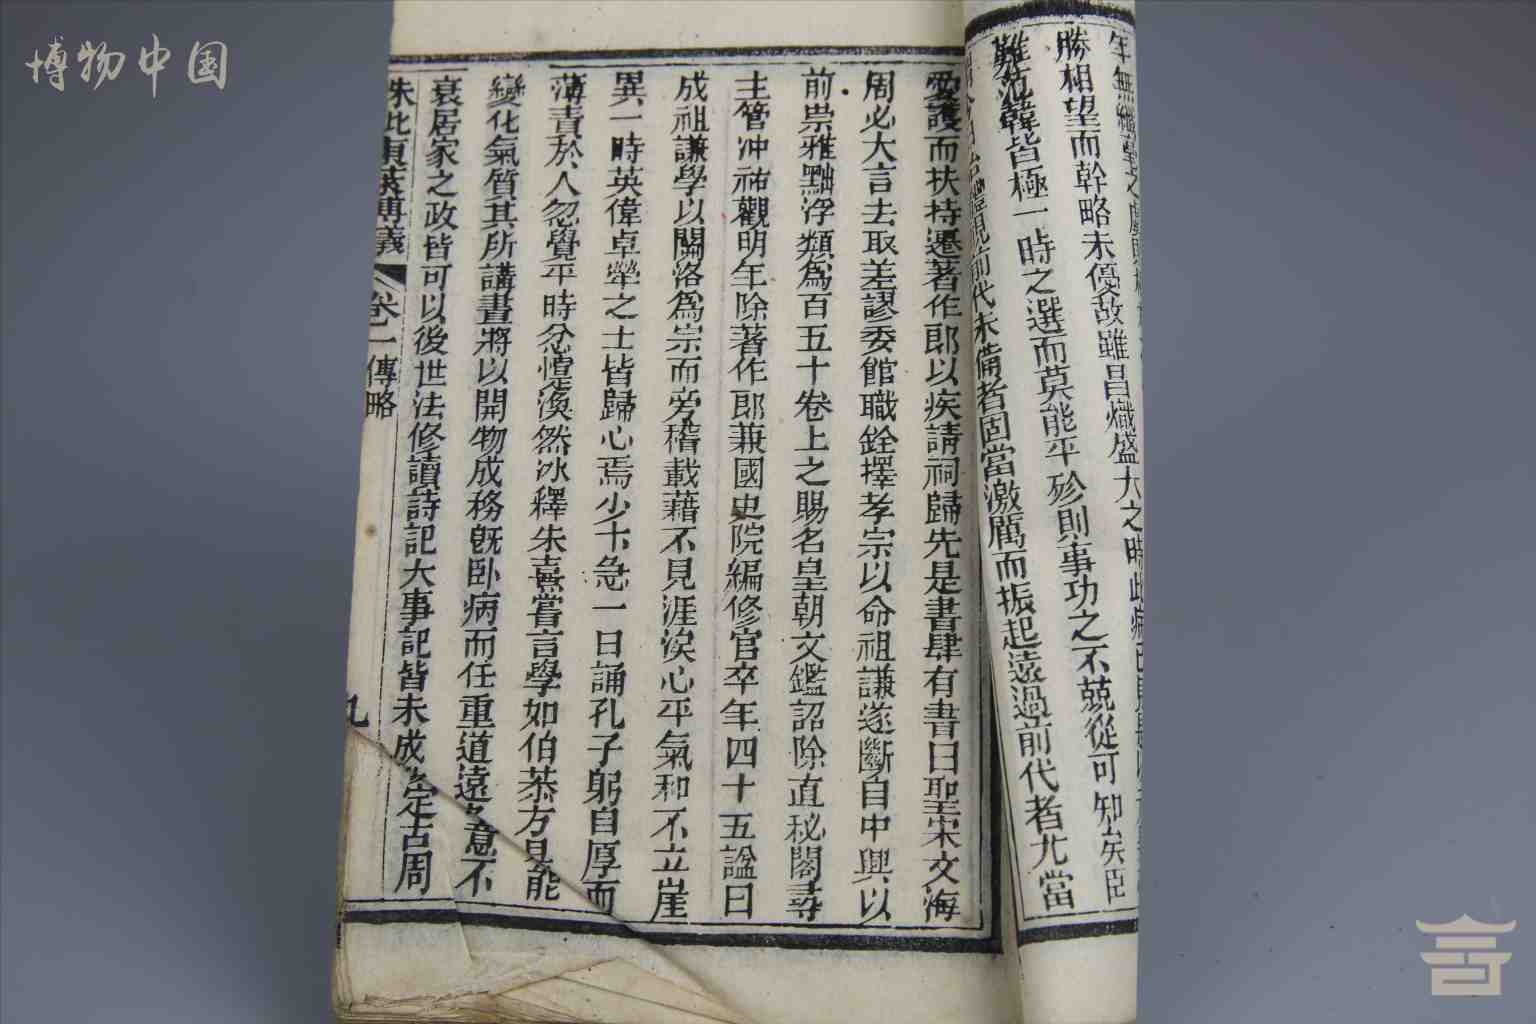 博物中国
勝相望而幹略未優故雖昌熾盛大之時此病
難范韓皆極一時之選而莫能平殄則事功之不競從可知矣臣
前代未備者固當激厲而振起遠過前代者尤當
愛護而扶持遷著作郎以疾請祠歸先是書肆有書曰聖宋文海
周必大言去取差謬委館職銓擇孝宗以命祖謙遂斷自中興以
前崇雅黜浮類為百五十卷上之賜名皇朝文鑑詔除直秘閣尋
主管冲祐觀明年除著作郎兼國史院編修官卒年四十五諡曰
成祖謙學以關洛為宗而旁稽載藉不見涯涘心平氣和不立崖
異一時英偉卓犖之士皆歸心焉少卞急一日誦孔子躬自厚而
薄責於人忽覺平時忿懥渙然冰釋朱熹嘗言學如伯恭方是能
變化氣質其所講畫將以開物成務既卧病而任重道遠之意不
衰居家之政皆可以後世法修讀詩記大事記皆未成定古周
東萊博議 卷一傳略 九